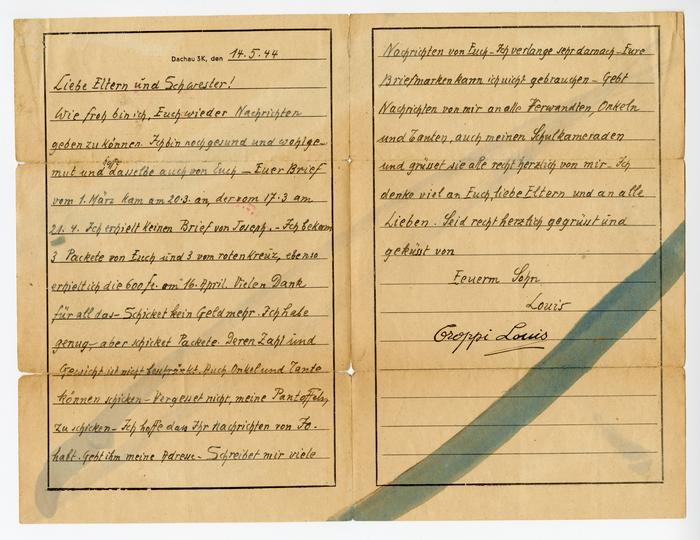 Dachau 3K, den 14.5.44
Liebe Eltern und Schwester!
Wie froh bin ich, Euch wieder Nachrichten
geben zu können. Ich bin noch gesund und wohlge-
hoffe
mut und dasselbe auch von Euch – Euer Brief
vom 1. März kam am 20.3. an, der vom 17.3 am
21.4. Ich erhielt keinen Brief von Joseph. – Ich bekam
3 Packete von Euch und 3 von roten Kreuz, ebenso
erhielt ich die 600 fr. am 16. April. Vielen Dank
für all das – Schicket kein Geld mehr. Ich habe
genug – aber schicket Packete. Deren Zahl und
Gewicht ist nicht beschränkt. Auch Onkel und Tante
können schicken – Vergesset nicht, meine Pantoffeln
zu schicken – Ich hoffe dass Ihr Nachrichten von Jo.
habt. Gebt ihm meine Adresse – Schreibet mir viele
Nachrichten von Euch – Ich verlange sehr darnach – Eure
Briefmarken kann ich nicht gebrauchen – Gebt
Nachrichten von mir an alle Verwandten, Onkeln
und Tanten, auch meinen Schulkameraden
und grüsset sie alle recht herzlich von mir – Ich
denke viel an Euch, liebe Eltern und an alle
Lieben. Seid recht herzlich gegrüsst und
geküsst von
Eeuerm Sohn
Louis
Croppi Louis